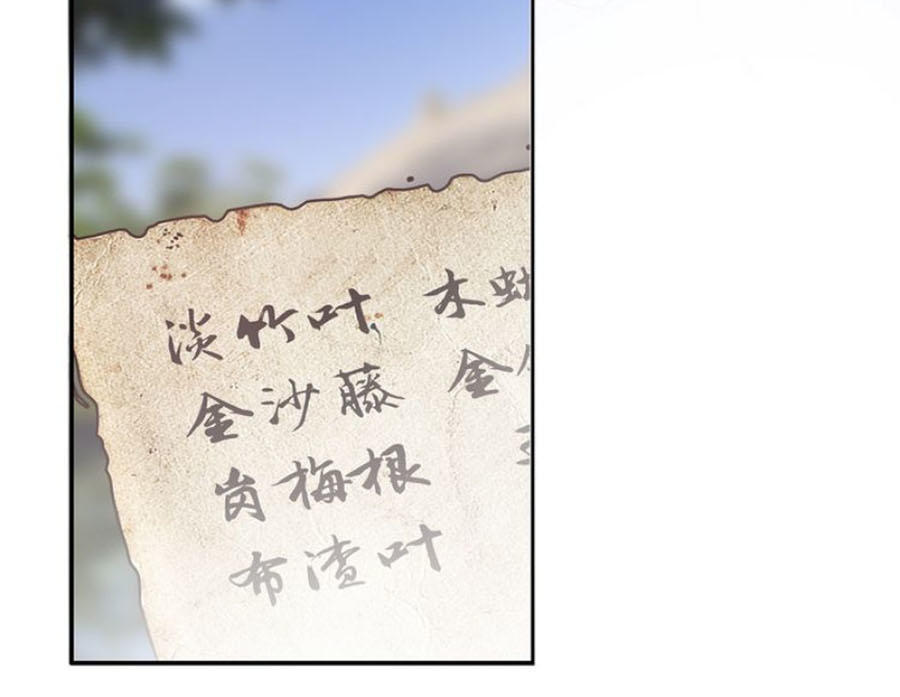 淡竹叶 木
金沙藤 金
岗梅根
布渣叶